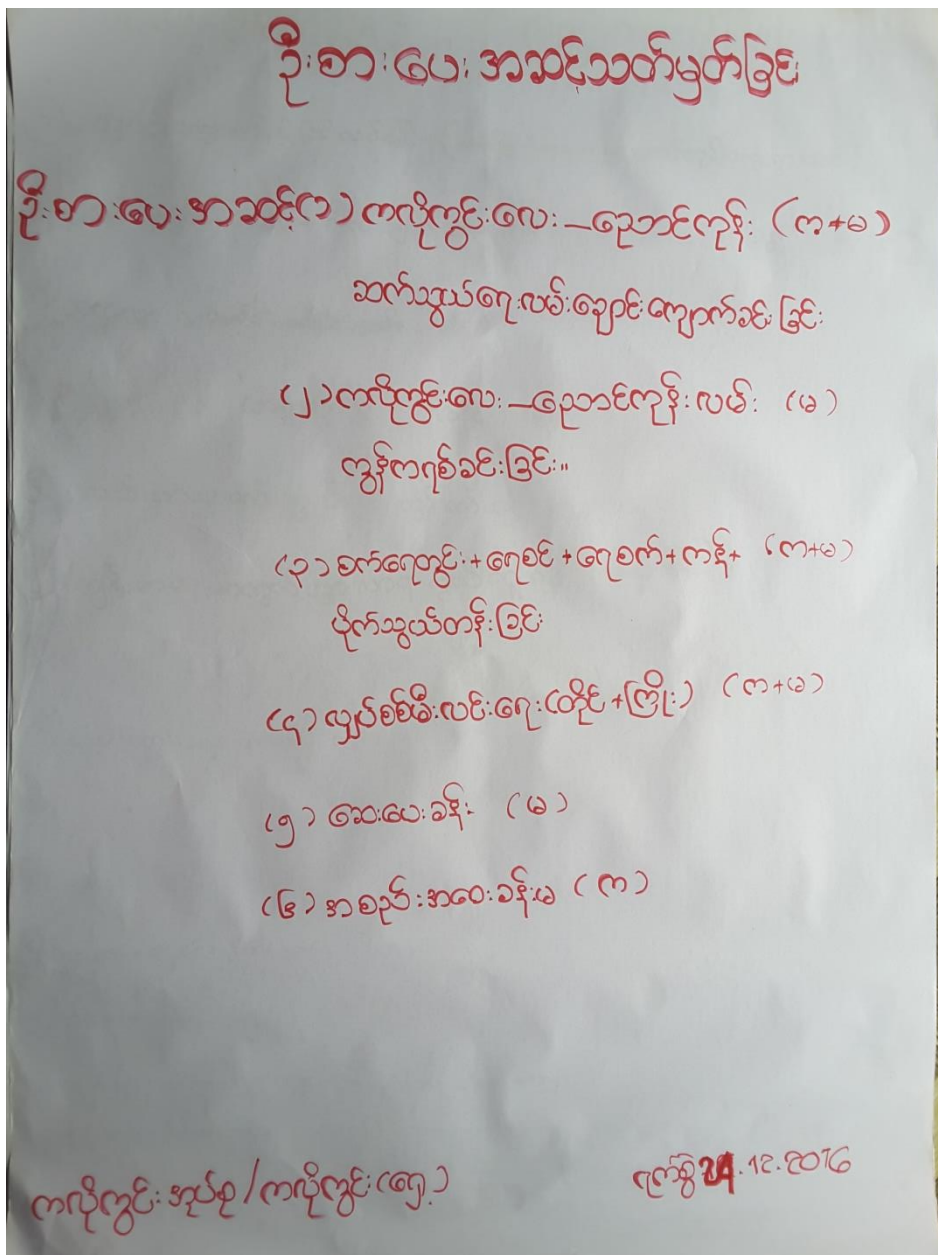 ဦးစားပေးအဆင့်သတ်မှတ်ခြင်း
ဦးစားပေးအဆင့်(၁) ကလိုကွင်းလေး_ညောင်ကုန်း (က+မ)
ဆက်သွယ်ရေးလမ်းချောင်းကျောက်ခင်းခြင်း
(၂) ကလိုကွင်းလေး_ညောင်ကုန်းလမ်း (မ)
ကွန်ကရစ်ခင်းခြင်း။
(၃) စက်ရေတွင်း+ရေစင်+ရေစက်+ကန်+ (က+မ)
ပိုက်သွယ်တန်းခြင်း
(၄) လျှပ်စစ်မီးလင်းရေး(တိုင်+ကြိုး) (က+မ)
(၅) ဆေးပေးခန်း (မ)
(၆) အစည်းအဝေးခန်းမ (က)
ကလိုကွင်းအုပ်စု/ကလိုကွင်း(ရှေ့) ရက်စွဲ 24.12.2016